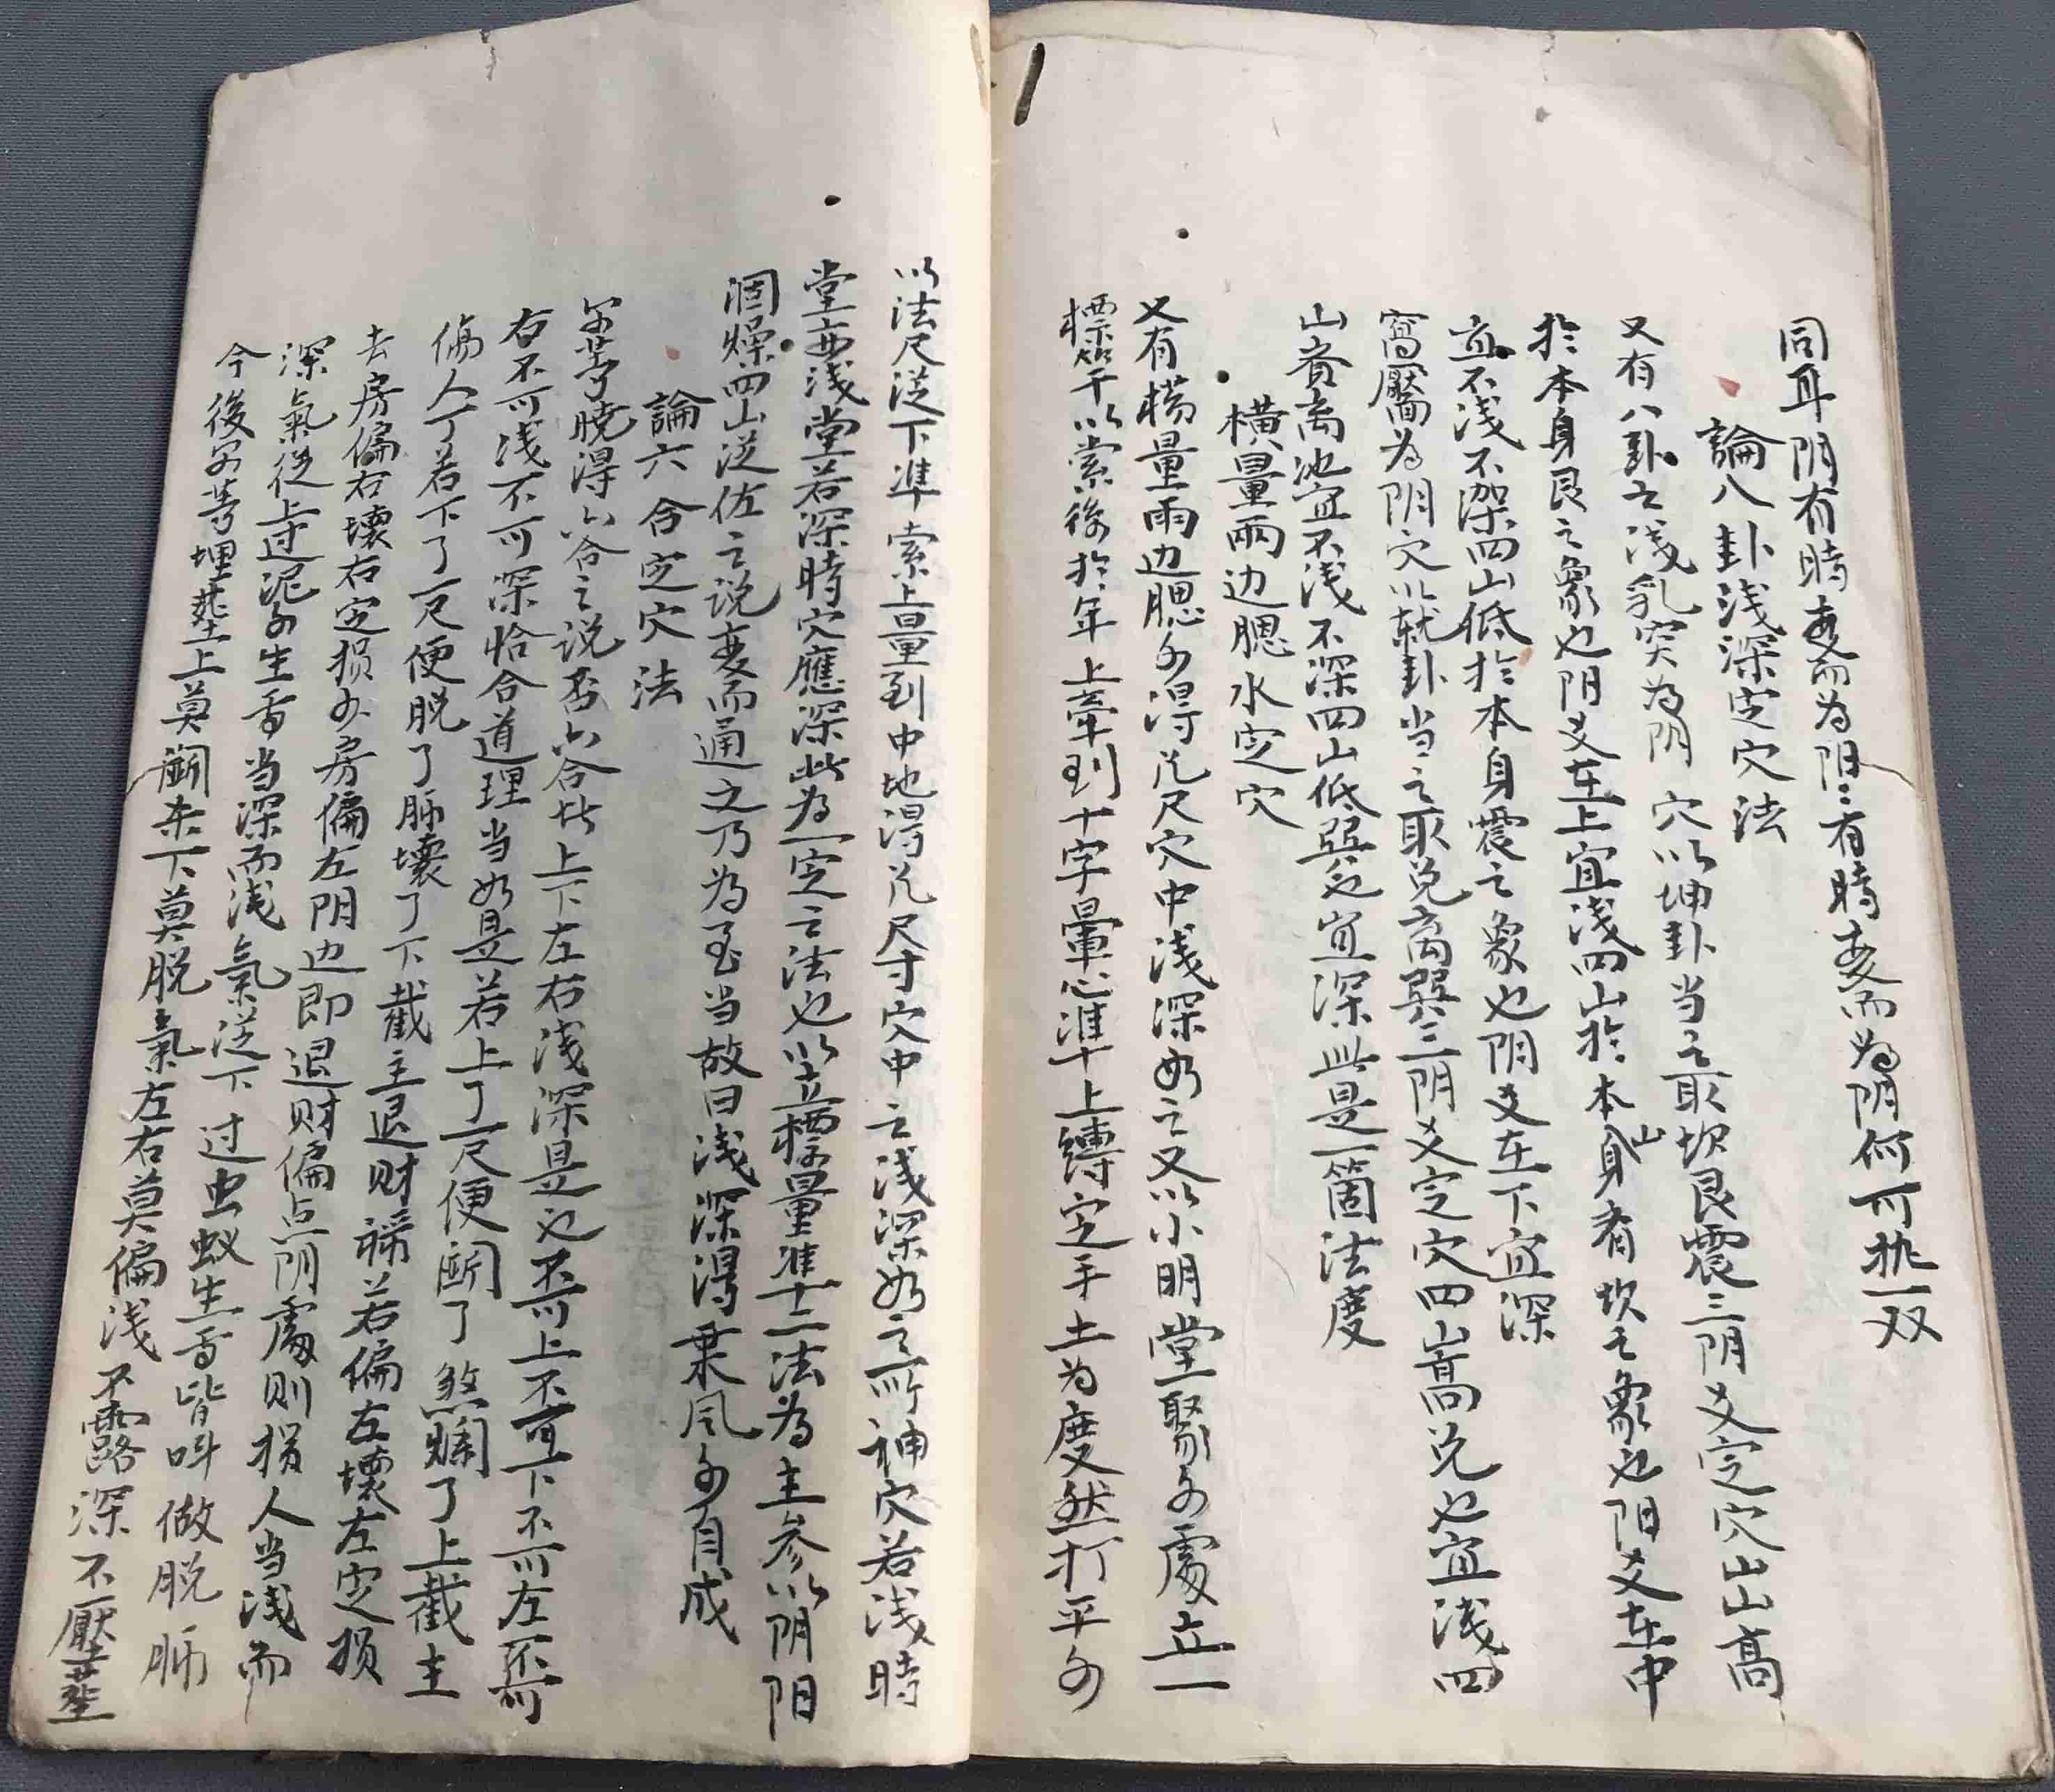 同耳阴有時变而为阳阳有時变而为阴何可执一双
論八卦浅深定穴法
又有八卦之浅乳突为阴穴以坤卦当之取坎艮震三阴爻定穴山高
於本身艮之象也阳爻在上宜浅四山於本身者坎之象也阳爻在中
宜不浅不深四山低於本身震之象也阴爻在下宜深
窩靨为阴穴以乾卦当之取兑离巽三阴爻定穴四山高兑也宜浅四
山齐离也宜不浅不深四山低巽也宜深此是一箇法度
橫量兩边腮水定穴
又有橫量兩边腮水得几尺穴中浅深如之又以小明堂聚水處立一
標竿以索後於年上牵到十字暈心準上縛定手土为度然打平水
以法尺从下準索上量到中地得几尺寸穴中之浅深如之所神穴若浅時
堂要浅堂若深時穴應深此为一定之法也以立標量準十二法为主参以阴阳
涸燥四山从佐之说变而通之乃为至当故曰浅深得乘风水自成
論六合定穴法
穿若曉得六合之说者六合者上下左右浅深是也不可上不可下不可左不可
右不可浅不可深恰合道理当如是若上了一尺便鬪了煞爛了上截主
傷人丁若下了一尺便脱了脉壞了下截主退财禍若偏左壞左定损
去房偏右壞右定损水房偏左阴边即退财偏点阴處则损人当浅而
深氣從上过泥水生香当深而浅氣从下过虫蚁生香皆叫做脱脉
今後穿莫埋葬上莫鬪杀下莫脱氣左右莫偏浅不露深不壓葬